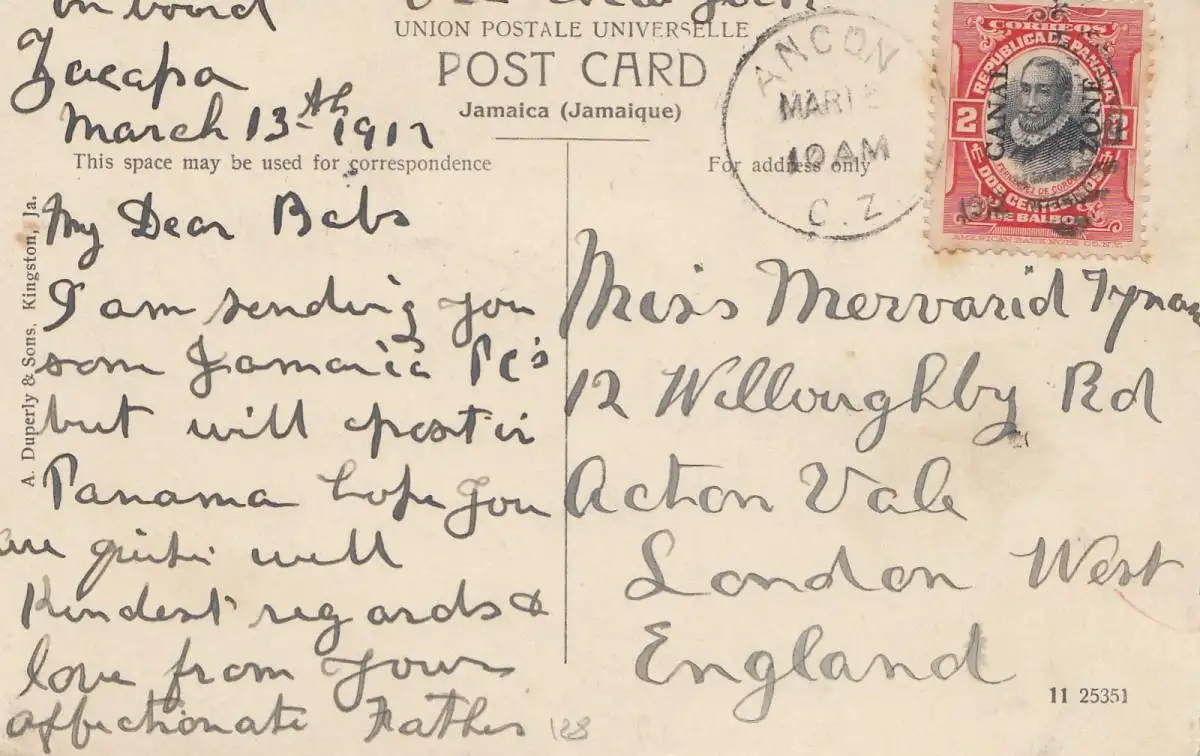 on board
UNION POSTALE UNIVERSELLE
POST CARD
Jamaica (Jamaique)
Zacapa
March 13th 1912
This space may be used for correspondence
For address only
A. Duperly & Sons, Kingston, Ja.
My Dear Babs
I am sending you
som Jamaica Pc's
but will post in
Panama hope you
are quite well
Kindest regards &
love from your
affectionate Father
128
ANCON
MAR
10 AM
C. Z.
CORREOS
REPUBLICA DE PANAMA
CANAL ZONE
2 2
FERNANDEZ DE CORDOBA
DOS CENTESIMOS
DE BALBOA
AMERICAN BANK NOTE CO. N.Y.
Miss Mervarid Tynan
12 Willoughby Rd
Acton Vale
London West
England
11 25351